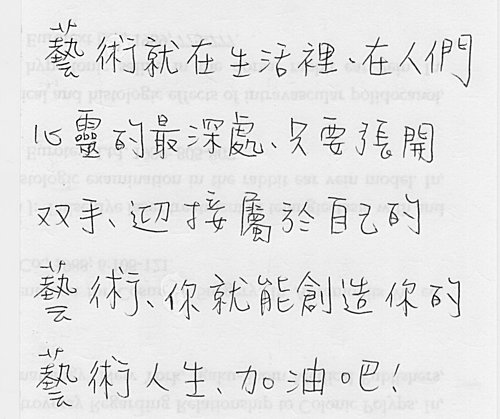 藝術就在生活裡、在人們
心靈的最深處、只要張開
双手、迎接屬於自己的
藝術、你就能創造你的
藝術人生、加油吧!